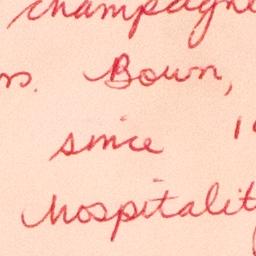 champagne
ns. Bown,
since 19
hospitalit